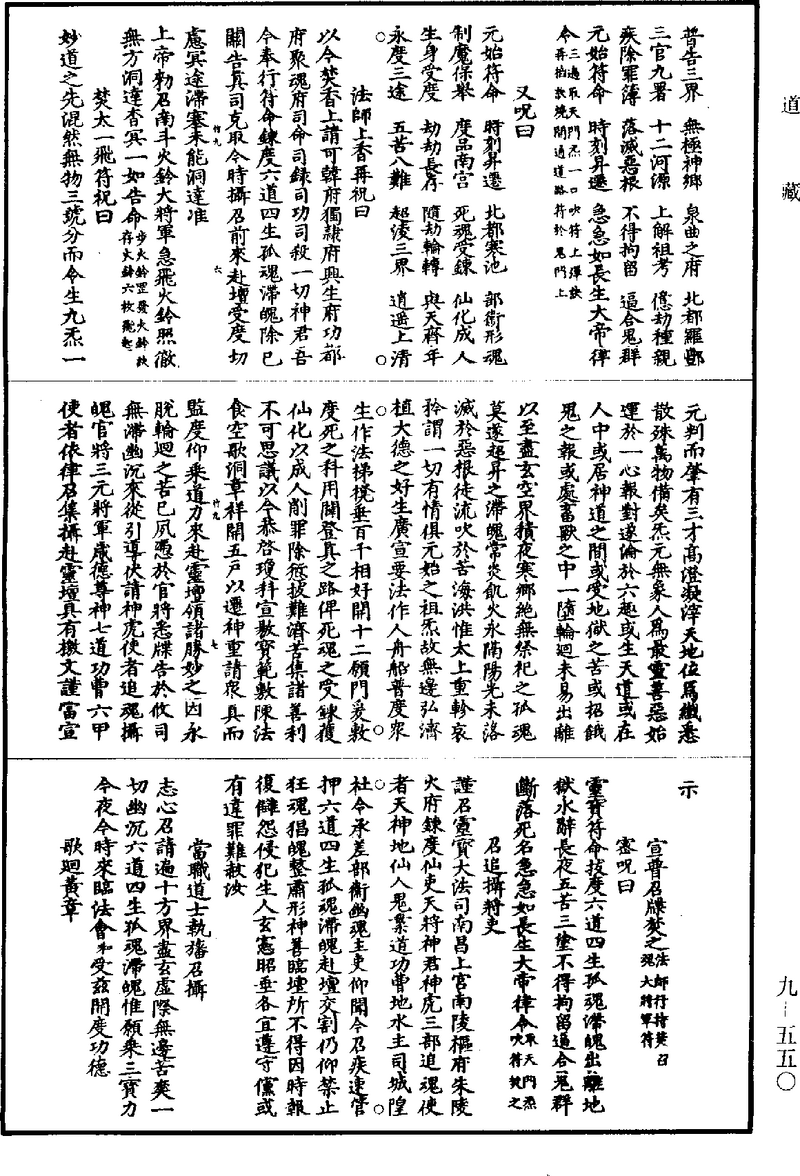 道藏
普告三界　無極神鄉　泉曲之府　北都羅酆
三官九署　十二河源　上解祖考　億劫種親
疾除罪簿　落滅惡根　不得拘留　逼合鬼群
元始符命　時刻昇遷　急急如長生大帝律
令三遍取天門炁一口吹符上彈訣再拍歘境開通道路符於鬼門上
又咒曰
元始符命　時刻昇遷　北都寒池　部衛形魂
制魔保舉　度品南宮　死魂受鍊　仙化成人
生身受度　劫劫長存　隨劫輪轉　與天齊年
永度三途　五苦八難　超凌三界　逍遥上清
法師上香再祝曰
以今焚香上請可韓府獨隸府興生府功都
府聚魂府司命司錄司功司殺一切神君吾
今奉行符命鍊度六道四生孤魂滯魄除已
關告真司克取今時攝召前來赴壇受度切
慮冥途滯寒未能洞達准
上帝勑召南斗火鈴大將軍急飛火鈴照徹
無方洞達杳冥一如告命步火鈴罡發火鈴訣存火鈴六枚飛起
焚太一飛符祝曰
妙道之先混然無物三號分而令生九炁一
元判而肇有三才高澄凝滓天地位焉纖悉
散殊萬物備矣炁元無象人爲最靈善惡始
運於一心報對遂淪於六趣或生天道或在
人中或居神道之間或受地獄之苦或招餓
鬼之報或處畜獸之中一墮輪迴未易出離
以至盡玄空界積夜寒鄉絶無祭祀之孤魂
莫遂超昇之滯魄當炎飢火永隔陽光未落
滅於惡根徒流吹於苦海洪惟太上重軫哀
矜謂一切有情俱元始之祖炁故無邊弘濟
植大德之好生廣宣要法作人舟船普度衆
生作法梯橙垂百千相好開十二願門爰敷
度死之科用闢登真之路俾死魂之受鍊獲
仙化以成人削罪除愆拔難濟苦集諸善利
不可思議以今恭啓瓊科宣敷寶範敷陳法
食空歌洞章祥開五戶以遷神重請衆真而
監度仰乘道力來赴靈壇領諸勝妙之因永
脫輪迴之苦已夙憑於官將悉牒告於攸司
無滯幽沉來從引導伏請神虎使者追魂攝
魄官將三元將軍威德尊神七道功曹六甲
使者依律召集攝赴靈壇具有檄文謹當宣
示
宣普召牒焚之法師行持焚召魂大將軍符
密咒曰
靈寶符命拔度六道四生孤魂滯魄出離地
獄永辭長夜五苦三塗不得拘留逼合鬼群
斷落死名急急如長生大帝律令取天門炁吹符焚之
召追攝將吏
謹召靈寶大法司南昌上宮南陵樞府朱陵
火府鍊度仙吏天將神君神虎三部追魂使
者天神地仙人鬼業道功曹地水主司城隍
社令承差部衛幽魂主吏仰聞今召疾速管
押六道四生孤魂滯魄赴壇交割仍仰禁止
狂魂猖魄整肅形神善臨壇所不得因時報
復讎怨侵犯生人玄憲昭垂各宜遵守儻或
有違罪難赦汝
當職道士執旛召攝
志心召請遍十方界盡玄虛際無邊苦爽一
切幽沉六道四生孤魂滯魄惟願乘三寶力
今夜今時來臨法會來受兹開度功德
歌迴黃章
九－五五〇